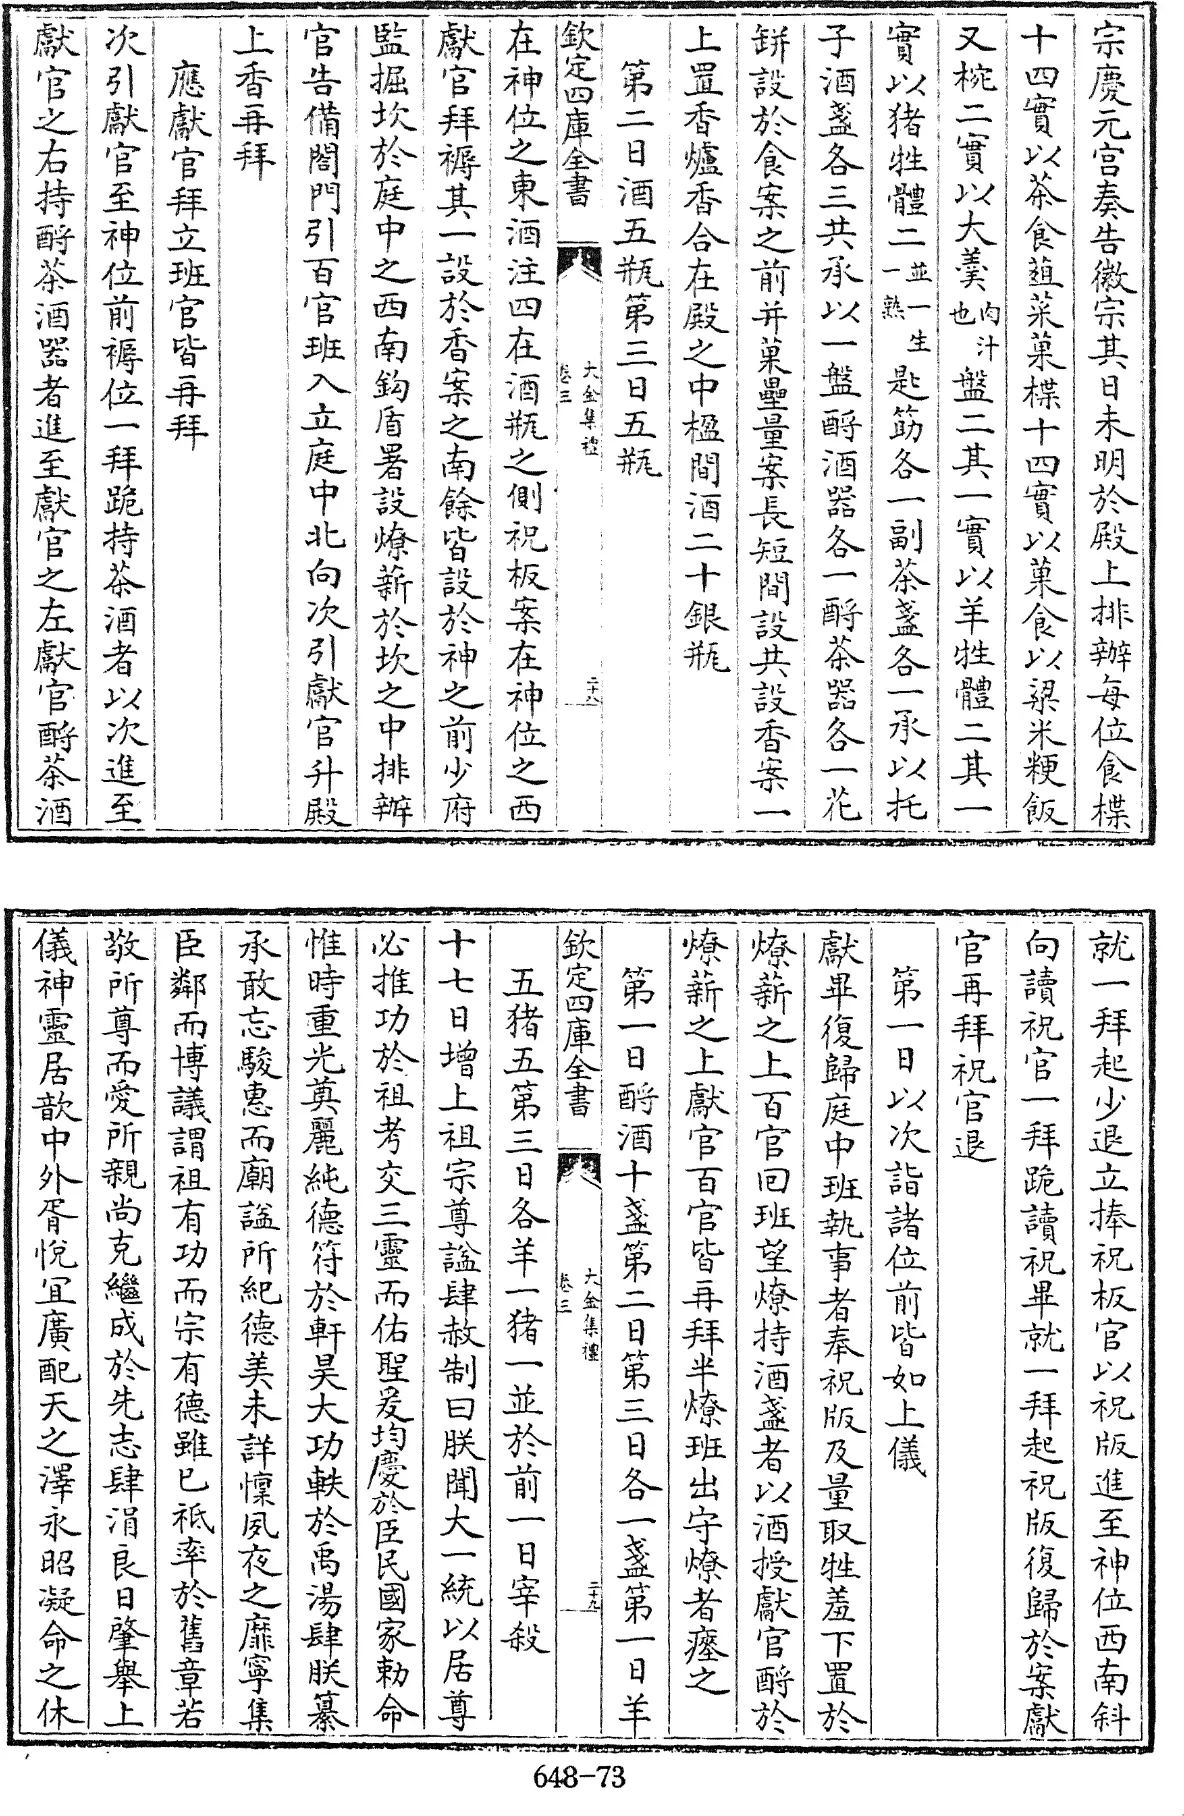 宗慶元宫奏告徽宗其日未明於殿上排辦每位食楪
十四實以茶食蔬菜菓楪十四實以菓食以粱米粳飯
又椀二實以大羹肉汁也盤二其一實以羊牲體二其一
實以猪牲體二並一生一熟匙筯各一副茶盞各一承以托
子酒盞各三共承以一盤酹酒器各一酹茶器各一花
缾設於食案之前并菓壘量案長短間設共設香案一
上置香爐香合在殿之中楹間酒二十銀瓶
第二日酒五瓶第三日五瓶
欽定四庫全書
大金集禮
卷三
二十八
在神位之東酒注四在酒瓶之側祝板案在神位之西
獻官拜褥其一設於香案之南餘皆設於神之前少府
監掘坎於庭中之西南鈎盾署設燎薪於坎之中排辦
官告備閤門引百官班入立庭中北向次引獻官升殿
上香再拜
應獻官拜立班官皆再拜
次引獻官至神位前褥位一拜跪持茶酒者以次進至
獻官之右持酹茶酒器者進至獻官之左獻官酹茶酒
就一拜起少退立捧祝板官以祝版進至神位西南斜
向讀祝官一拜跪讀祝畢就一拜起祝版復歸於案獻
官再拜祝官退
第一日以次詣諸位前皆如上儀
獻畢復歸庭中班執事者奉祝版及量取牲羞下置於
燎薪之上百官回班望燎持酒盞者以酒授獻官酹於
燎薪之上獻官百官皆再拜半燎班出守燎者瘞之
第一日酹酒十盞第二日第三日各一盞第一日羊
欽定四庫全書
大金集禮
卷三
二十九
五猪五第三日各羊一猪一並於前一日宰殺
十七日增上祖宗尊諡肆赦制曰朕聞大一統以居尊
必推功於祖考交三靈而佑聖爰均慶於臣民國家勅命
惟時重光奠麗純德符於軒昊大功軼於禹湯肆朕纂
承敢忘駿惠而廟諡所紀德美未詳懍夙夜之靡寧集
臣鄰而博議謂祖有功而宗有德雖已祗率於舊章若
敬所尊而愛所親尚克繼成於先志肆涓良日肇舉上
儀神靈居歆中外胥悅宜廣配天之澤永昭凝命之休
648-73